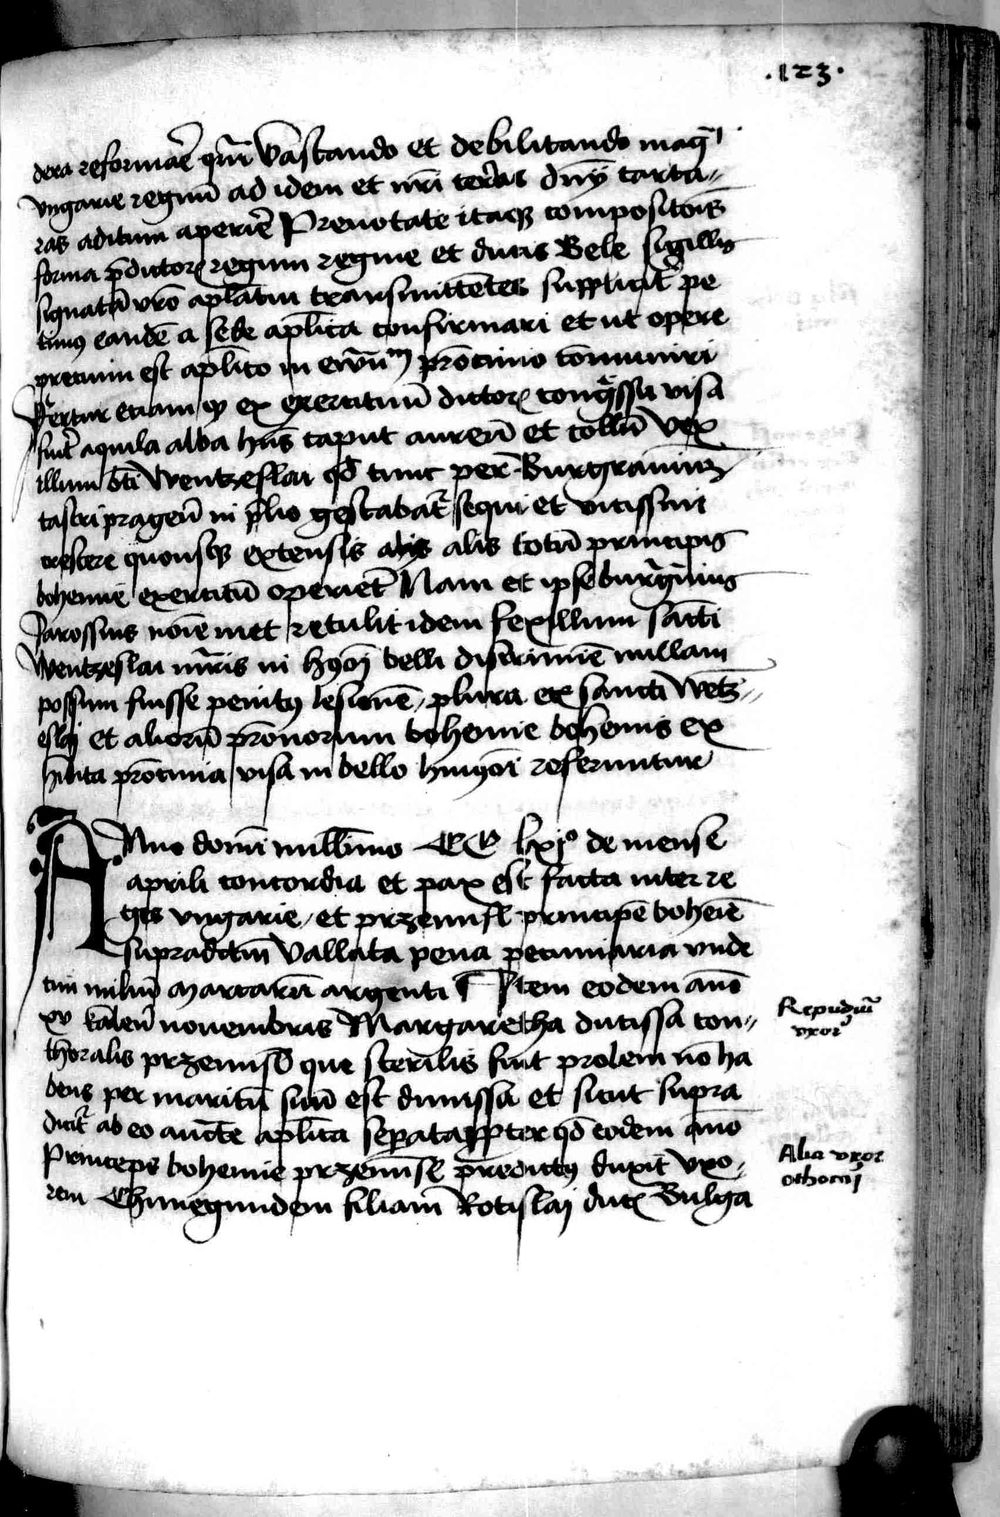 .123.
dera reformarē quā vastando et debilitando magis
vngarie regnū ad idem et nr̄i terras
ras aditum aperirē Prenotate itaqꝫ compositōis
forma p̄dictoꝝ regum regine et ducis Bele sigillis
signatā vr̄o aplātui transmittentes supplicit̄ pe
timus eandē a sede aplīca confirmari et ut opere
precium est aplīco in pr̄ocinio cōmuniri
Fertur etiam qꝫ ex exercituū dictoꝝ conḡssu visa
fuit aquila alba hn̄s caput aureū et collū vex
illum bt̄i Wentzeslai qd̄ tunc per Burgrauiuꝫ
castri pragen̄ in p̄lio gestabat̄ sequi et vicissim
crescere quousqꝫ extensis alis totū principis
bohemie exercitū operiet̄ Nam et ipse burgrauius
Jarossius noīe met retulit idem fexillum sāncti
Wentzeslai mr̄is in h9oī belli discrimīe nullam
possum fuisse penitꝰ lesionē, plura eciā sancti Wentz
eslaj et aliorū pr̄onorum bohemie bohemis ex
hibita pr̄ocinia visa in bello hui9oī referuntur
Anno domī mill̄imo CC lxjº de mense
aprili concordia et pax est facta inter re
ges vngarie, et przemisl principē bohēie
supradctm̄ Vallata pena pecuniaria vnde
cim miliū marcarū argenti Item eodem āno
xv kalen̄ nouembris Margaretha ducissa con
thoralis przemisl que sterilis fuit prolem nō ha
bens per maritū suū est dimissa et sicut supra
dicit̄ ab eo auctē aplīca sepata ꝓpter qd̄ eodem āno
Princeps bohemie przemisl predictꝰ duxit vxo
rem Chunegundem filiam Rotislaj duc̄ Bulga
Repudiū
vxor̄
Alia vxor
othocari